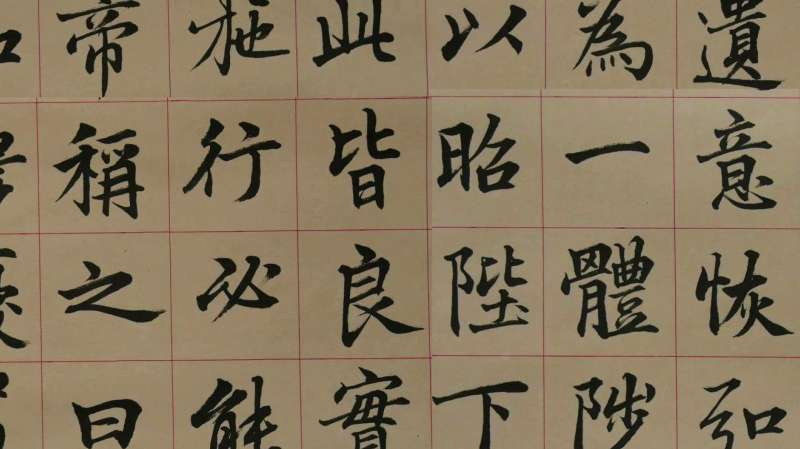 遺意恢弘
為一體陟
以昭陛下
此皆良實
施行必能
帝稱之曰